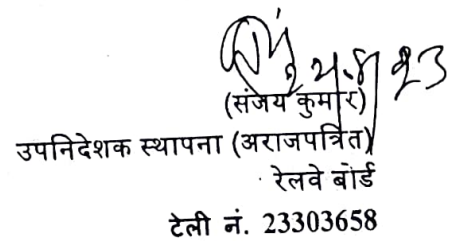 (संजय कुमार)
उपनिदेशक स्थापना (अराजपत्रित)
रेलवे बोर्ड
टेली नं. 23303658